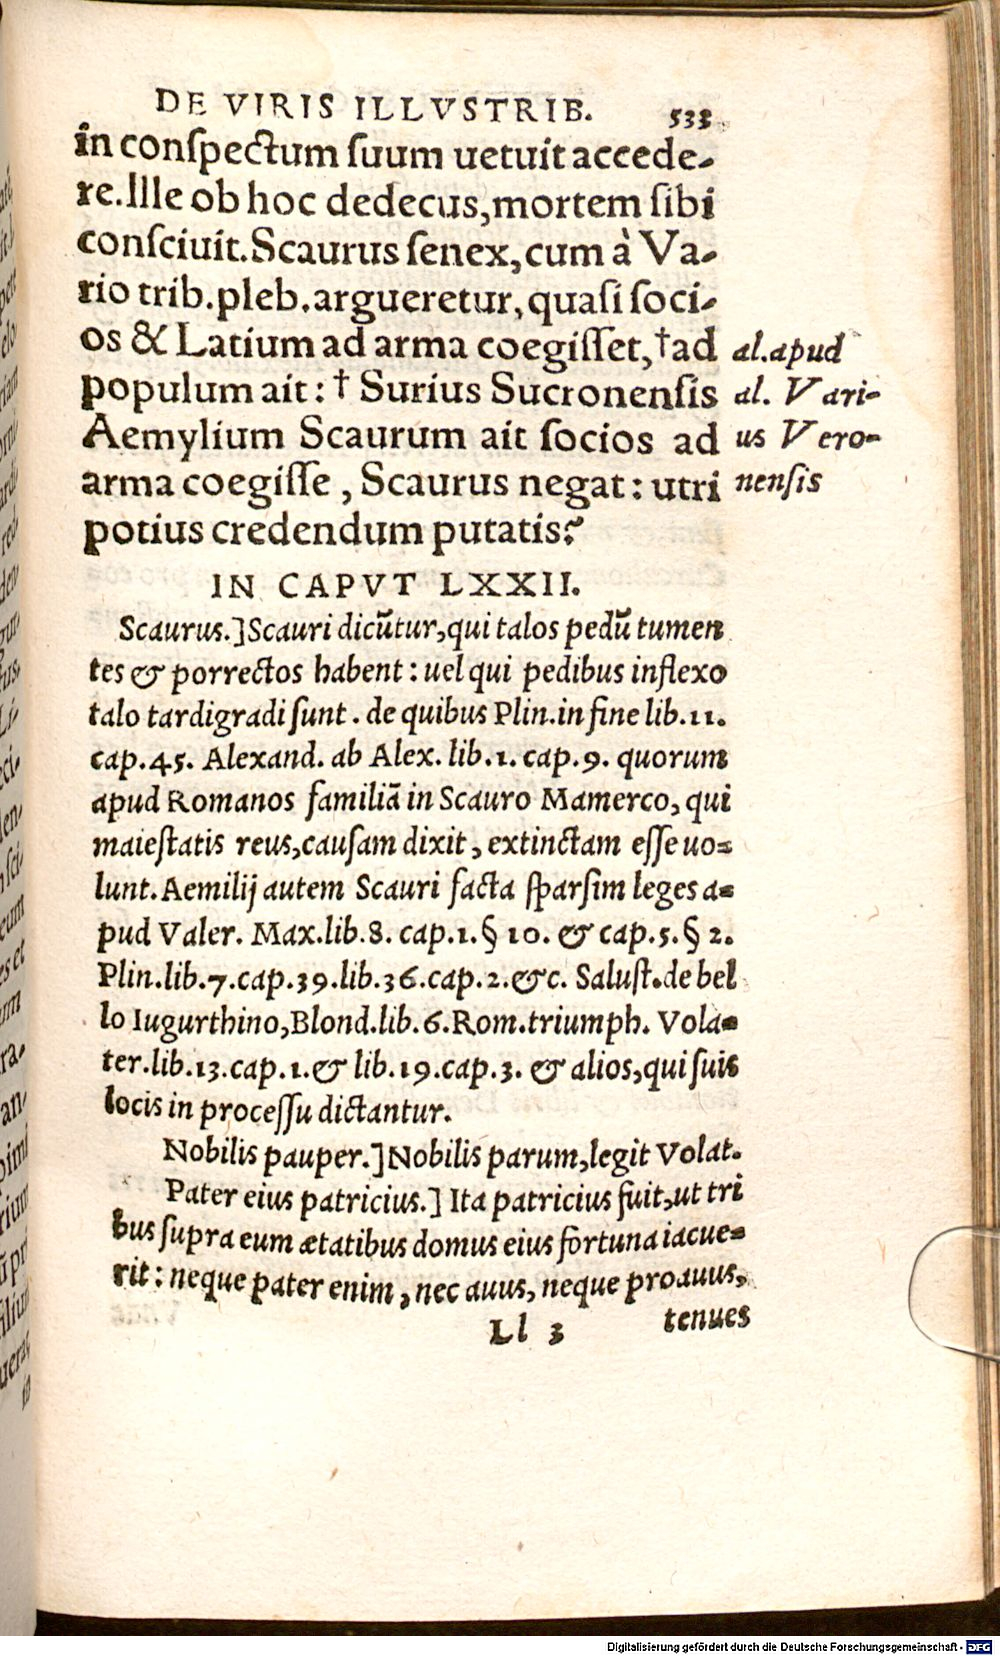 DE VIRIS ILLVSTRIB. 533
in conſpectum ſuum uetuit accede-
re. Ille ob hoc dedecus, mortem ſibi
conſciuit. Scaurus ſenex, cum à Va-
rio trib. pleb. argueretur, quaſi ſoci-
os & Latium ad arma coegiſſet, † ad
populum ait: † Surius Sucronenſis
Aemylium Scaurum ait ſocios ad
arma coegiſſe, Scaurus negat: utri
potius credendum putatis?
al. apud
al. Vari-
us Vero-
nenſis
IN CAPVT LXXII.
Scaurus.] Scauri dicūtur, qui talos pedū tumen
tes & porrectos habent: uel qui pedibus inflexo
talo tardigradi ſunt. de quibus Plin. in fine lib. 11.
cap. 45. Alexand. ab Alex. lib. 1. cap. 9. quorum
apud Romanos familiā in Scauro Mamerco, qui
maieſtatis reus, cauſam dixit, extinctam eſſe uo-
lunt. Aemilij autem Scauri facta ſparſim leges a-
pud Valer. Max. lib. 8. cap. 1. § 10. & cap. 5. § 2.
Plin. lib. 7. cap. 39. lib. 36. cap. 2. &c. Saluſt. de bel
lo Iugurthino, Blond. lib. 6. Rom. triumph. Vola-
ter. lib. 13. cap. 1. & lib. 19. cap. 3. & alios, qui ſuis
locis in proceſſu dictantur.
Nobilis pauper.] Nobilis parum, legit Volat.
Pater eius patricius.] Ita patricius fuit, ut tri
bus ſupra eum ætatibus domus eius fortuna iacue-
rit: neque pater enim, nec auus, neque proauus,
Ll 3 tenues
Digitalisierung gefördert durch die Deutsche Forschungsgemeinschaft - DFG